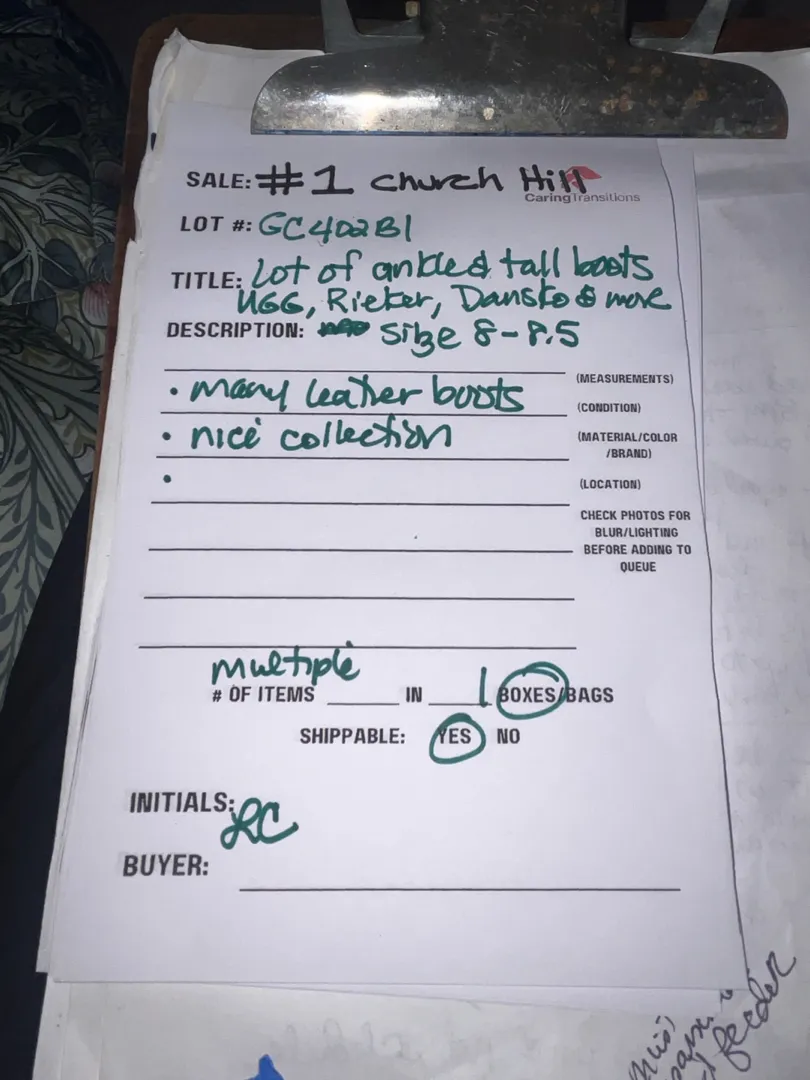 SALE: #1 Church Hill
CaringTransitions
LOT #: GC402B1
TITLE: Lot of ankle & tall boots
UGG, Rieker, Dansko & more
DESCRIPTION: Size 8-8.5
(MEASUREMENTS)
• many leather boots
(CONDITION)
• nice collection
(MATERIAL/COLOR
/BRAND)
•
(LOCATION)
CHECK PHOTOS FOR
BLUR/LIGHTING
BEFORE ADDING TO
QUEUE
multiple
# OF ITEMS ____ IN 1 BOXES/BAGS
SHIPPABLE: YES NO
INITIALS: RC
BUYER:
feeder